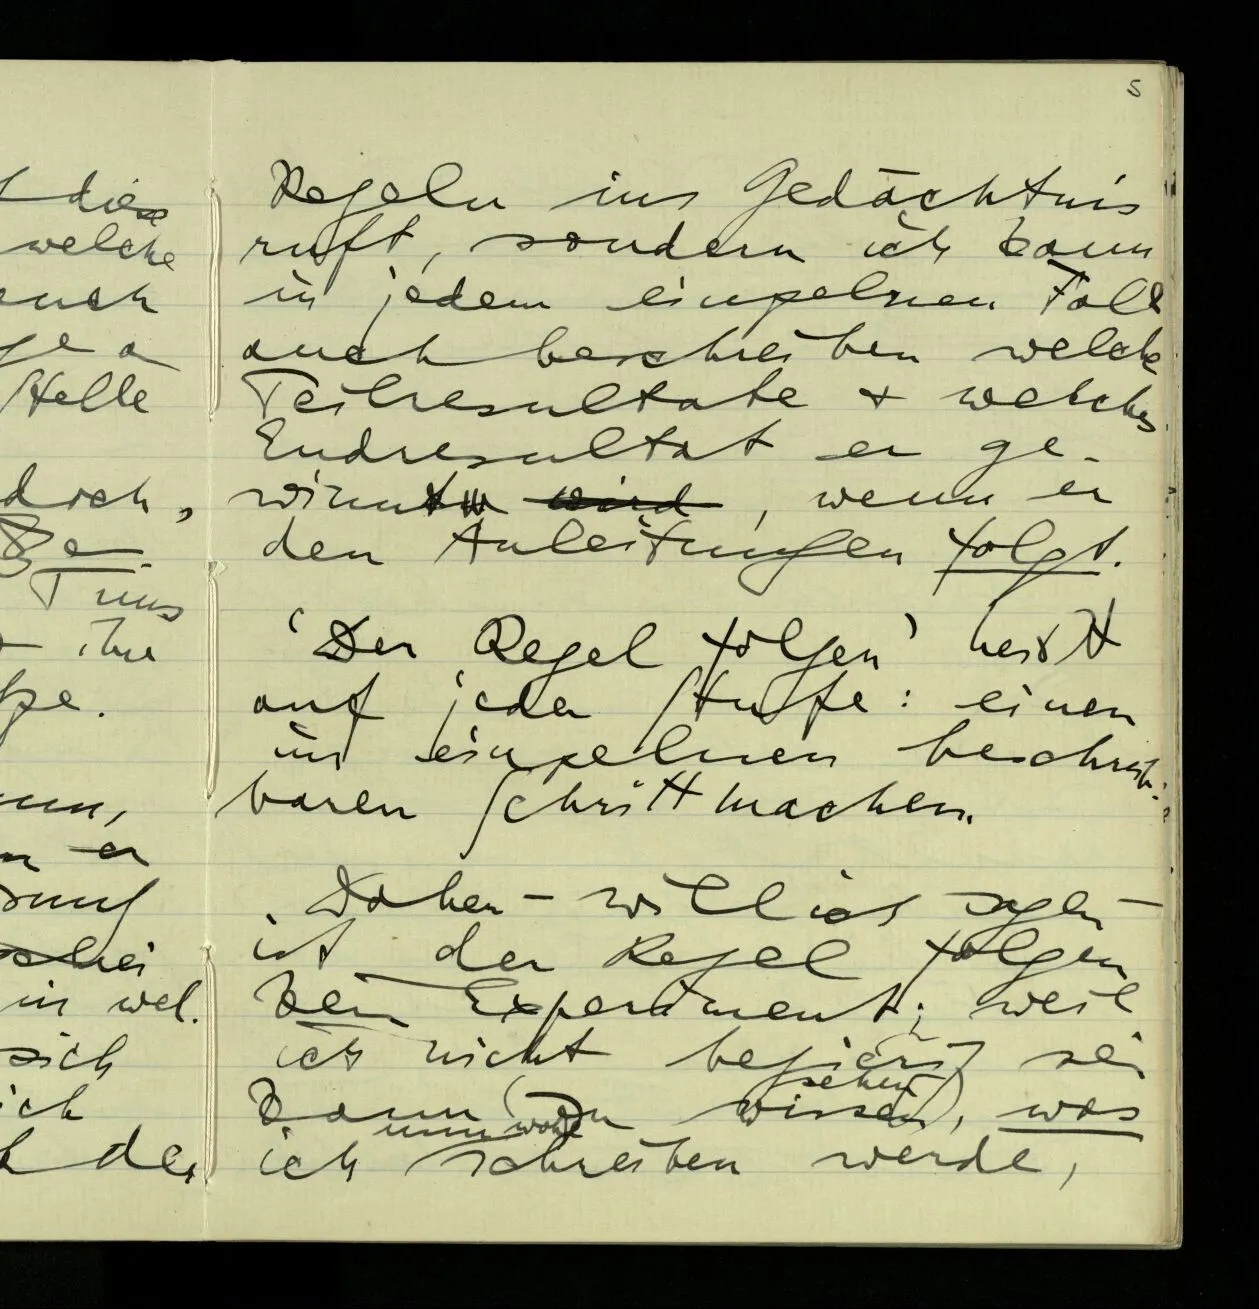 5
t diese
welche
auch
ge a
Stelle
doch,
Be-
Tuns
ihre
pe.
er
in wel-
sich
ich
der
Regeln ins Gedächtnis
ruft, sondern ich kann
in jedem einzelnen Fall
auch beschreiben welche
Teilresultate & welches
Endresultat er ge-
winnt wird, wenn er
den Anleitungen folgt.
'Der Regel folgen' heißt
auf jeder Stufe: einen
im einzelnen beschreib-
baren Schritt machen.
Daher – will ich sagen –
ist der Regel folgen
kein Experiment; weil
ich nicht begierig sei
sehen
kann (zu wissen), was
nun wohl
ich schreiben werde,